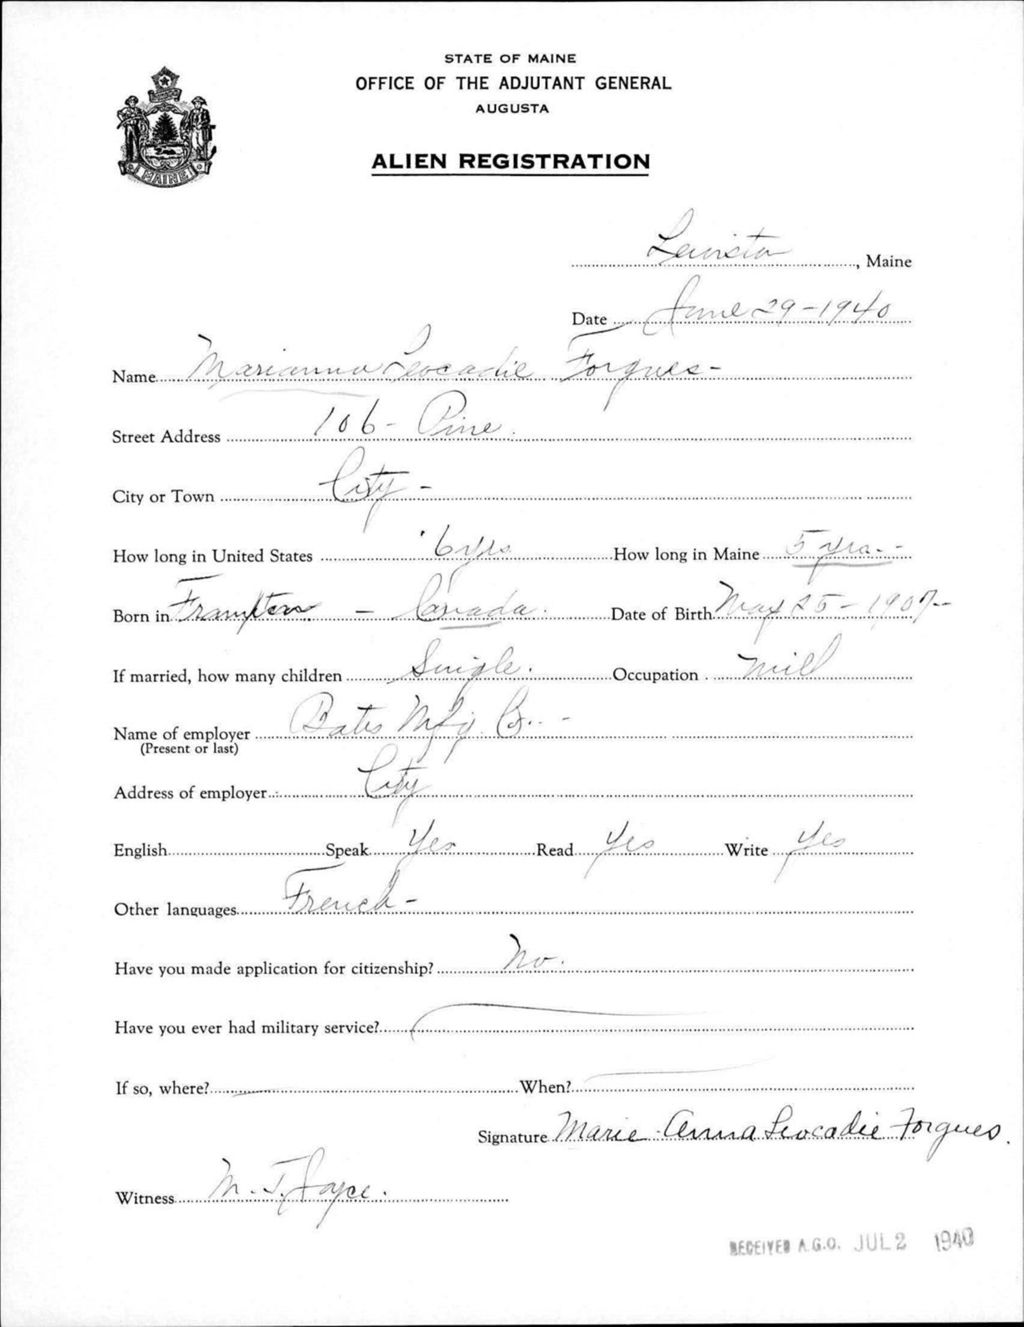 STATE OF MAINE
OFFICE OF THE ADJUTANT GENERAL
AUGUSTA
MAINE
ALIEN REGISTRATION
Lewiston, Maine
Date June 29-1940
Name Marianna Leocadie Forgues-
Street Address 106- Pine.
City or Town City-
How long in United States 6 yrs How long in Maine 5 yrs.-
Born in Frampton - Canada. Date of Birth May 25-1907-
If married, how many children Single. Occupation Mill
Name of employer Bates Mfg. Co.-
(Present or last)
Address of employer City
English Speak Yes Read Yes Write Yes
Other languages French-
Have you made application for citizenship? No.
Have you ever had military service?
If so, where? When?
Signature Marie-Anna Leocadie Forgues.
Witness M. T. Joyce.
RECEIVED A.G.O. JUL 2 1940